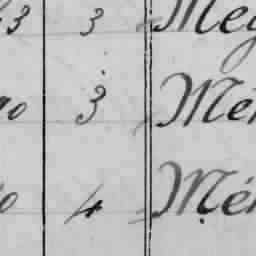 3 3 Meg
90 3 Mé
0 4 Mér